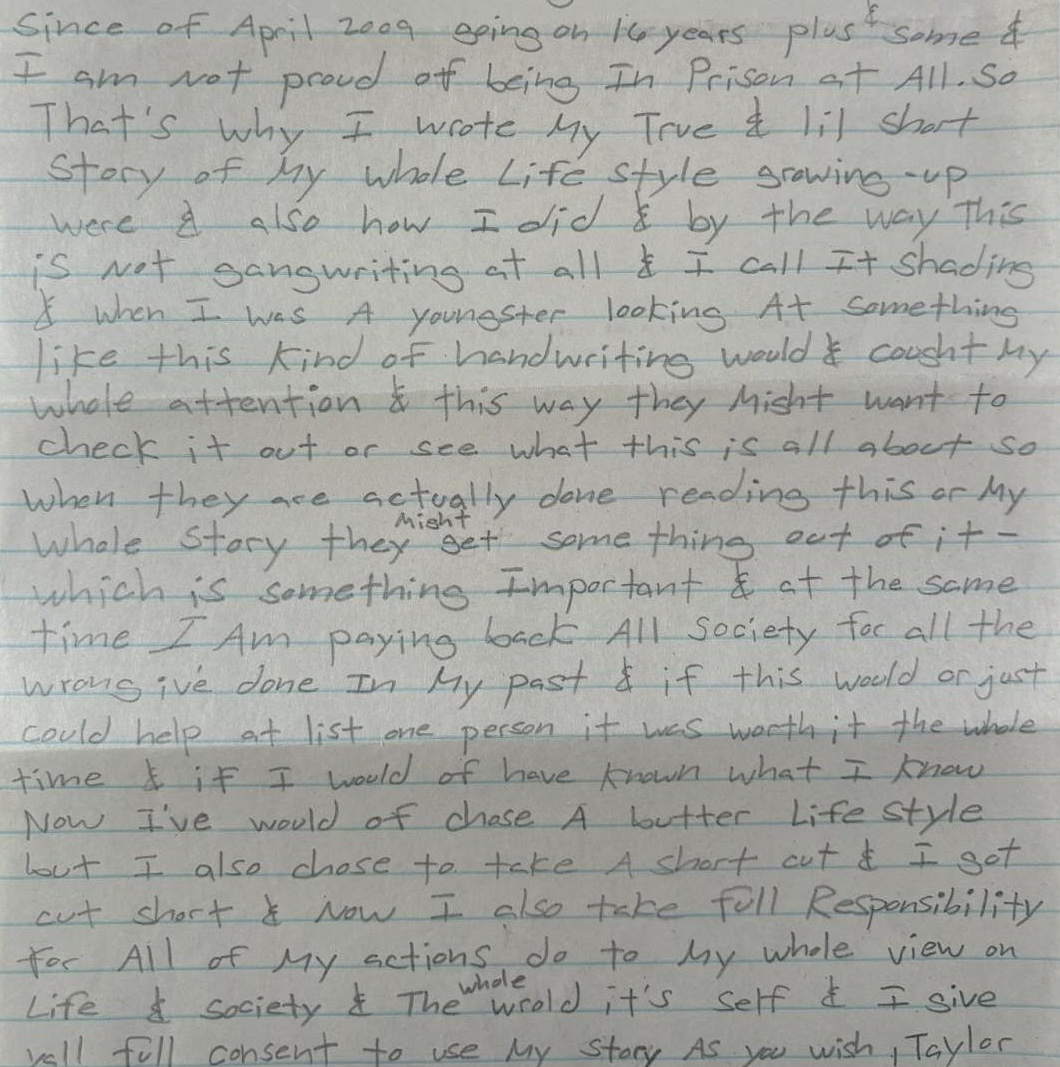 Since of April 2009 going on 16 years plus & some &
I am not proud of being In Prison at All. So
That's why I wrote My True & lil short
Story of My whole Life style growing-up
were & also how I did & by the way This
is Not gangwriting at all & I call It shading
& when I was A youngster looking At something
like this Kind of handwriting would & cought My
whole attention & this way they Might want to
check it out or see what this is all about so
when they are actually done reading this or My
whole Story they Might get some thing out of it -
which is something Important & at the same
time I Am paying back All society for all the
wrong ive done In My past & if this would or just
could help at list one person it was worth it the whole
time & if I would of have known what I know
Now I've would of chose A butter Life style
but I also chose to take A short cut & I got
cut short & Now I also take full Responsibility
for All of My actions do to My whole view on
Life & society & The whole wrold it's self & I give
yall full consent to use My Story As you wish, Taylor